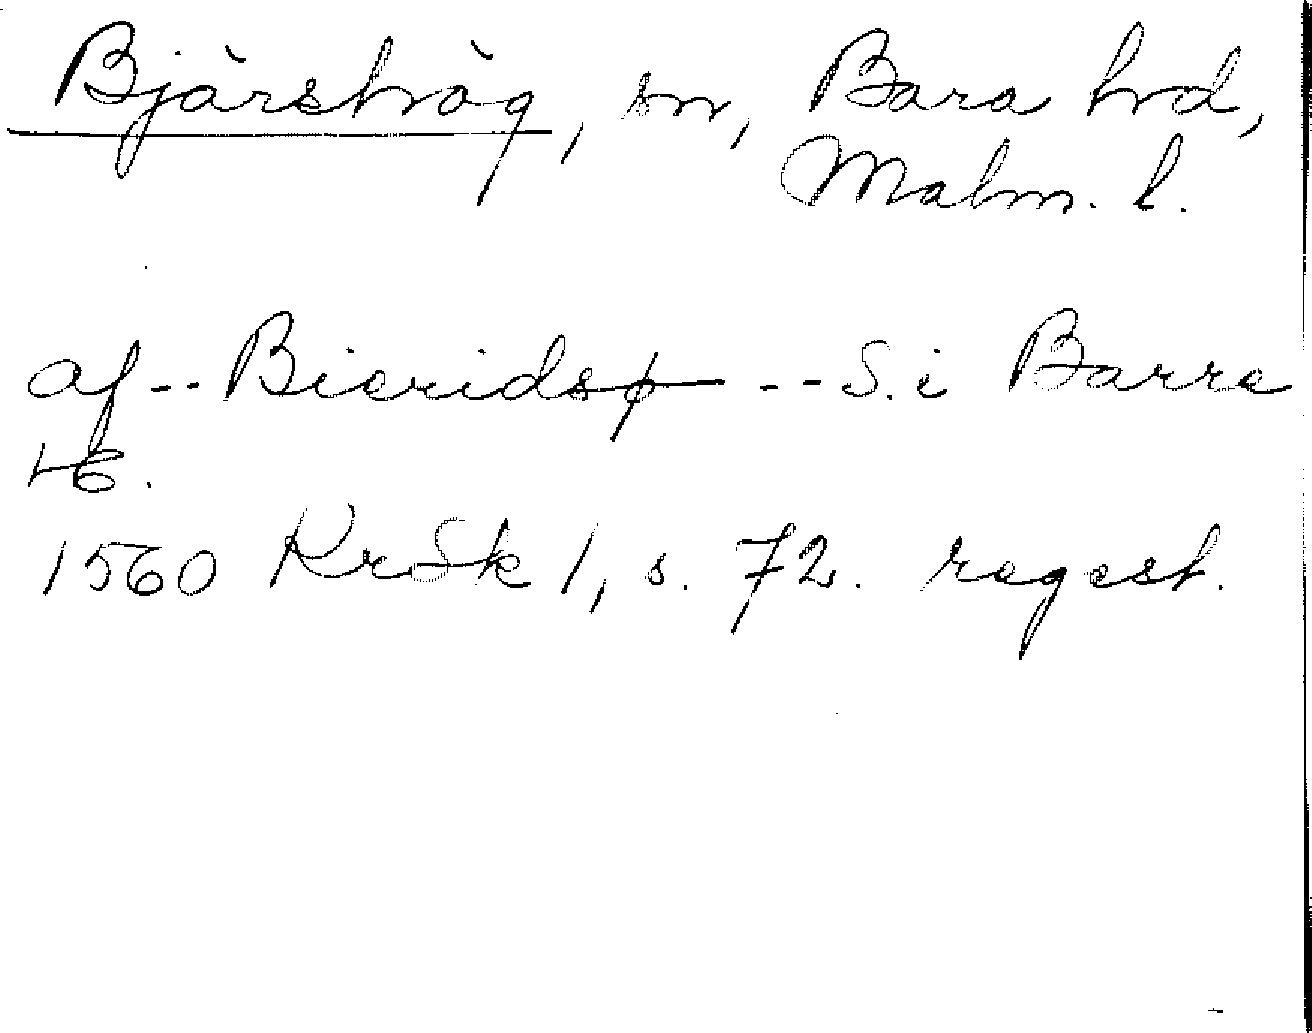 Bjärshög, sn, Bara hrd,
Malm. l.
af -- Bieridsø -- S. i Barre
H.
1560 KrSk 1, s. 72. regest.